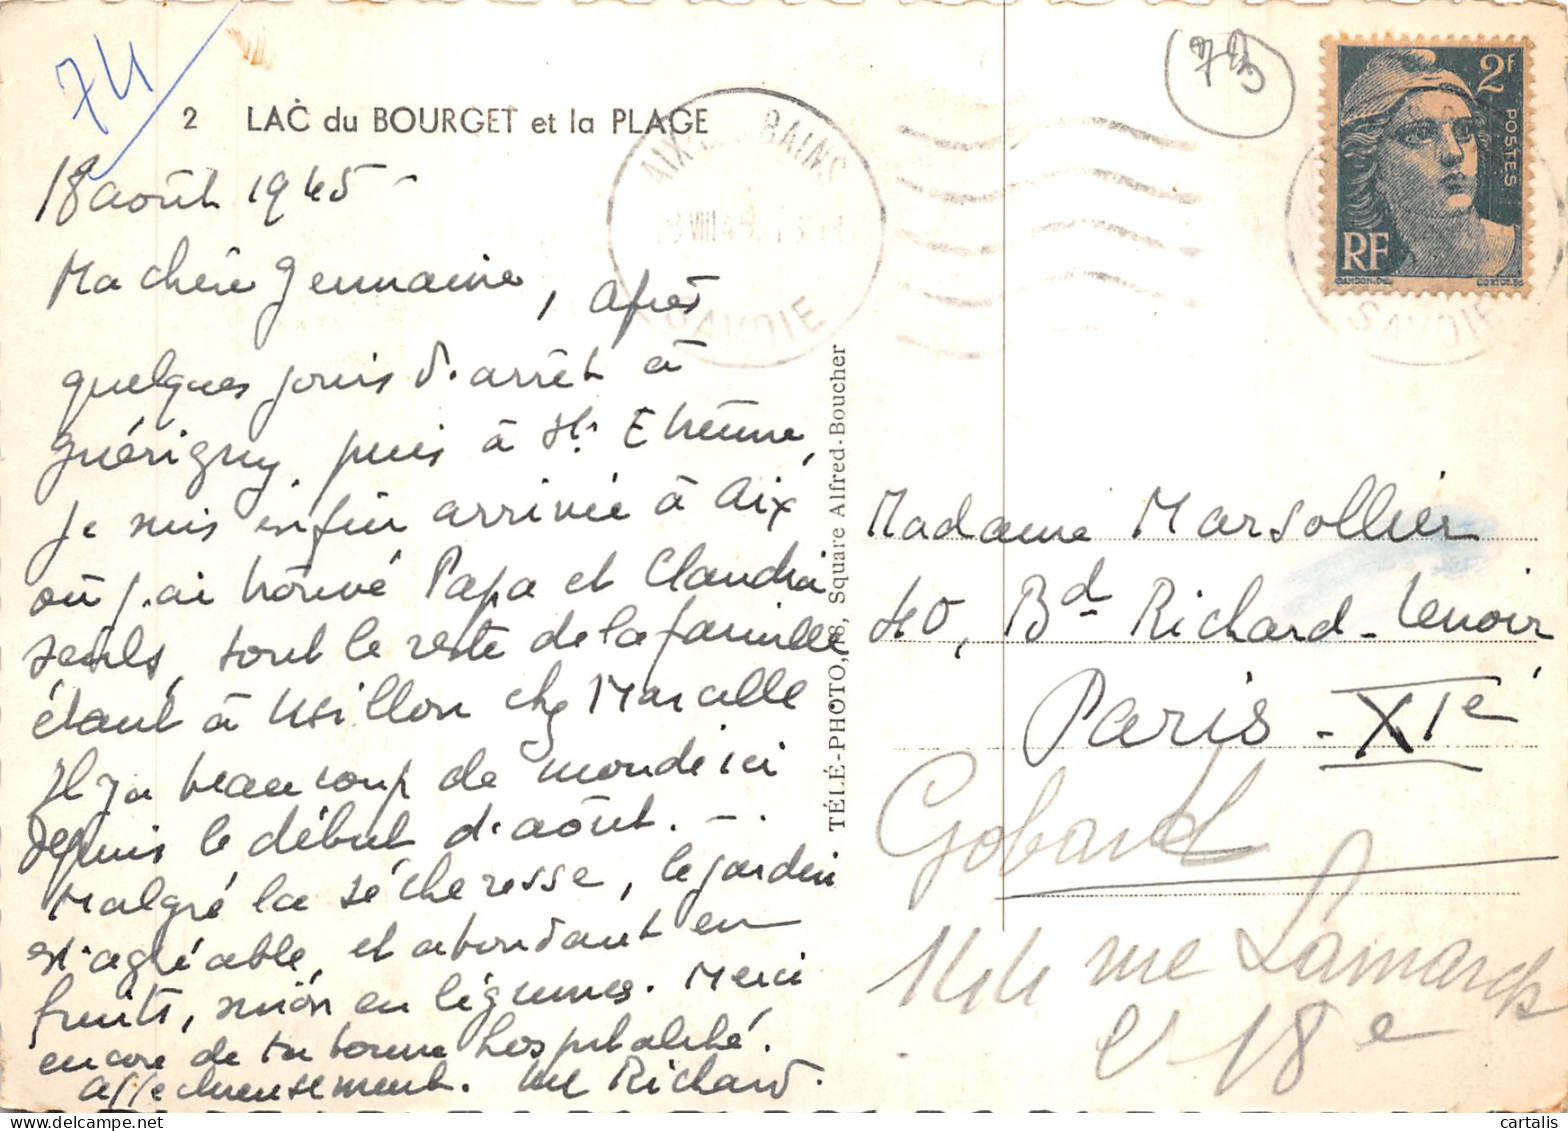 74
73
2 LAC du BOURGET et la PLAGE
AIX BAINS
VIII 45
SAVOIE
2f
POSTES
RF
GANDON.DEL
CORTOT.SC
SAVOIE
18 août 1945 -
Ma chère Germaine, après
quelques jours d'arrêt à
Guérigny, puis à St. Etienne,
je suis enfin arrivée à Aix
où j'ai trouvé Papa et Claudia
seuls, tout le reste de la famille
étant à Usillon chez Marcelle
Il y a beaucoup de monde ici
depuis le début d'août. - .
Malgré la sécheresse, le jardin
est agréable, et abondant en
fruits, sinon en légumes. Merci
encore de ta bonne hospitalité.
affectueusement. Richard.
TÉLÉ-PHOTO, 18, Square Alfred-Boucher
Madame Marsollier
40, Bd Richard-Lenoir
Paris - XIe
Gobard
144 rue Lamarck
18e
cartalis